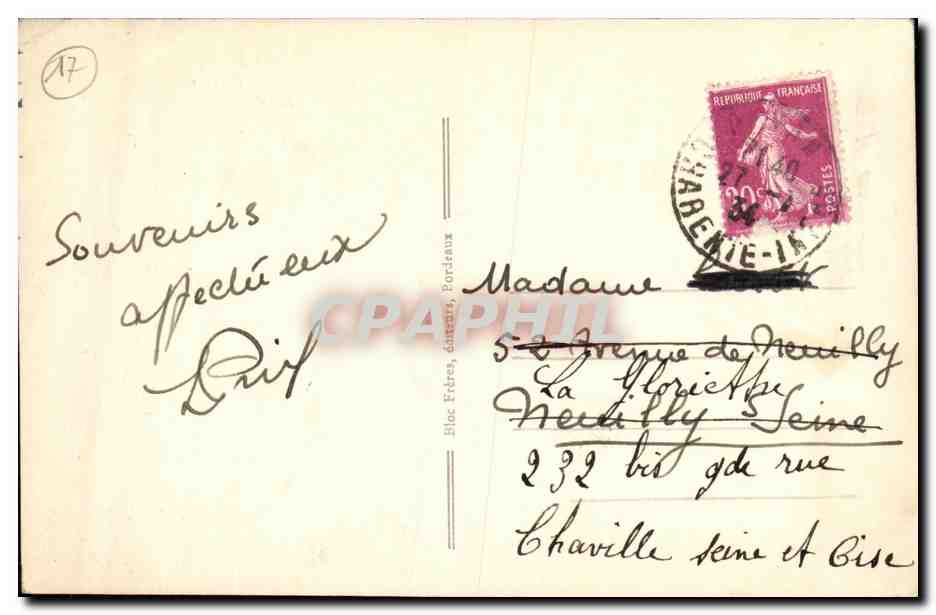 17
Souvenirs
affectueux
Bloc Frères, éditeurs, Bordeaux
CPAPHIL
REPUBLIQUE FRANÇAISE
POSTES
20c
11 40
27
34
CHARENTE-INF
Madame
52 Avenue de Neuilly
La Gloriette
Neuilly s Seine
232 bis gde rue
Chaville Seine et Oise